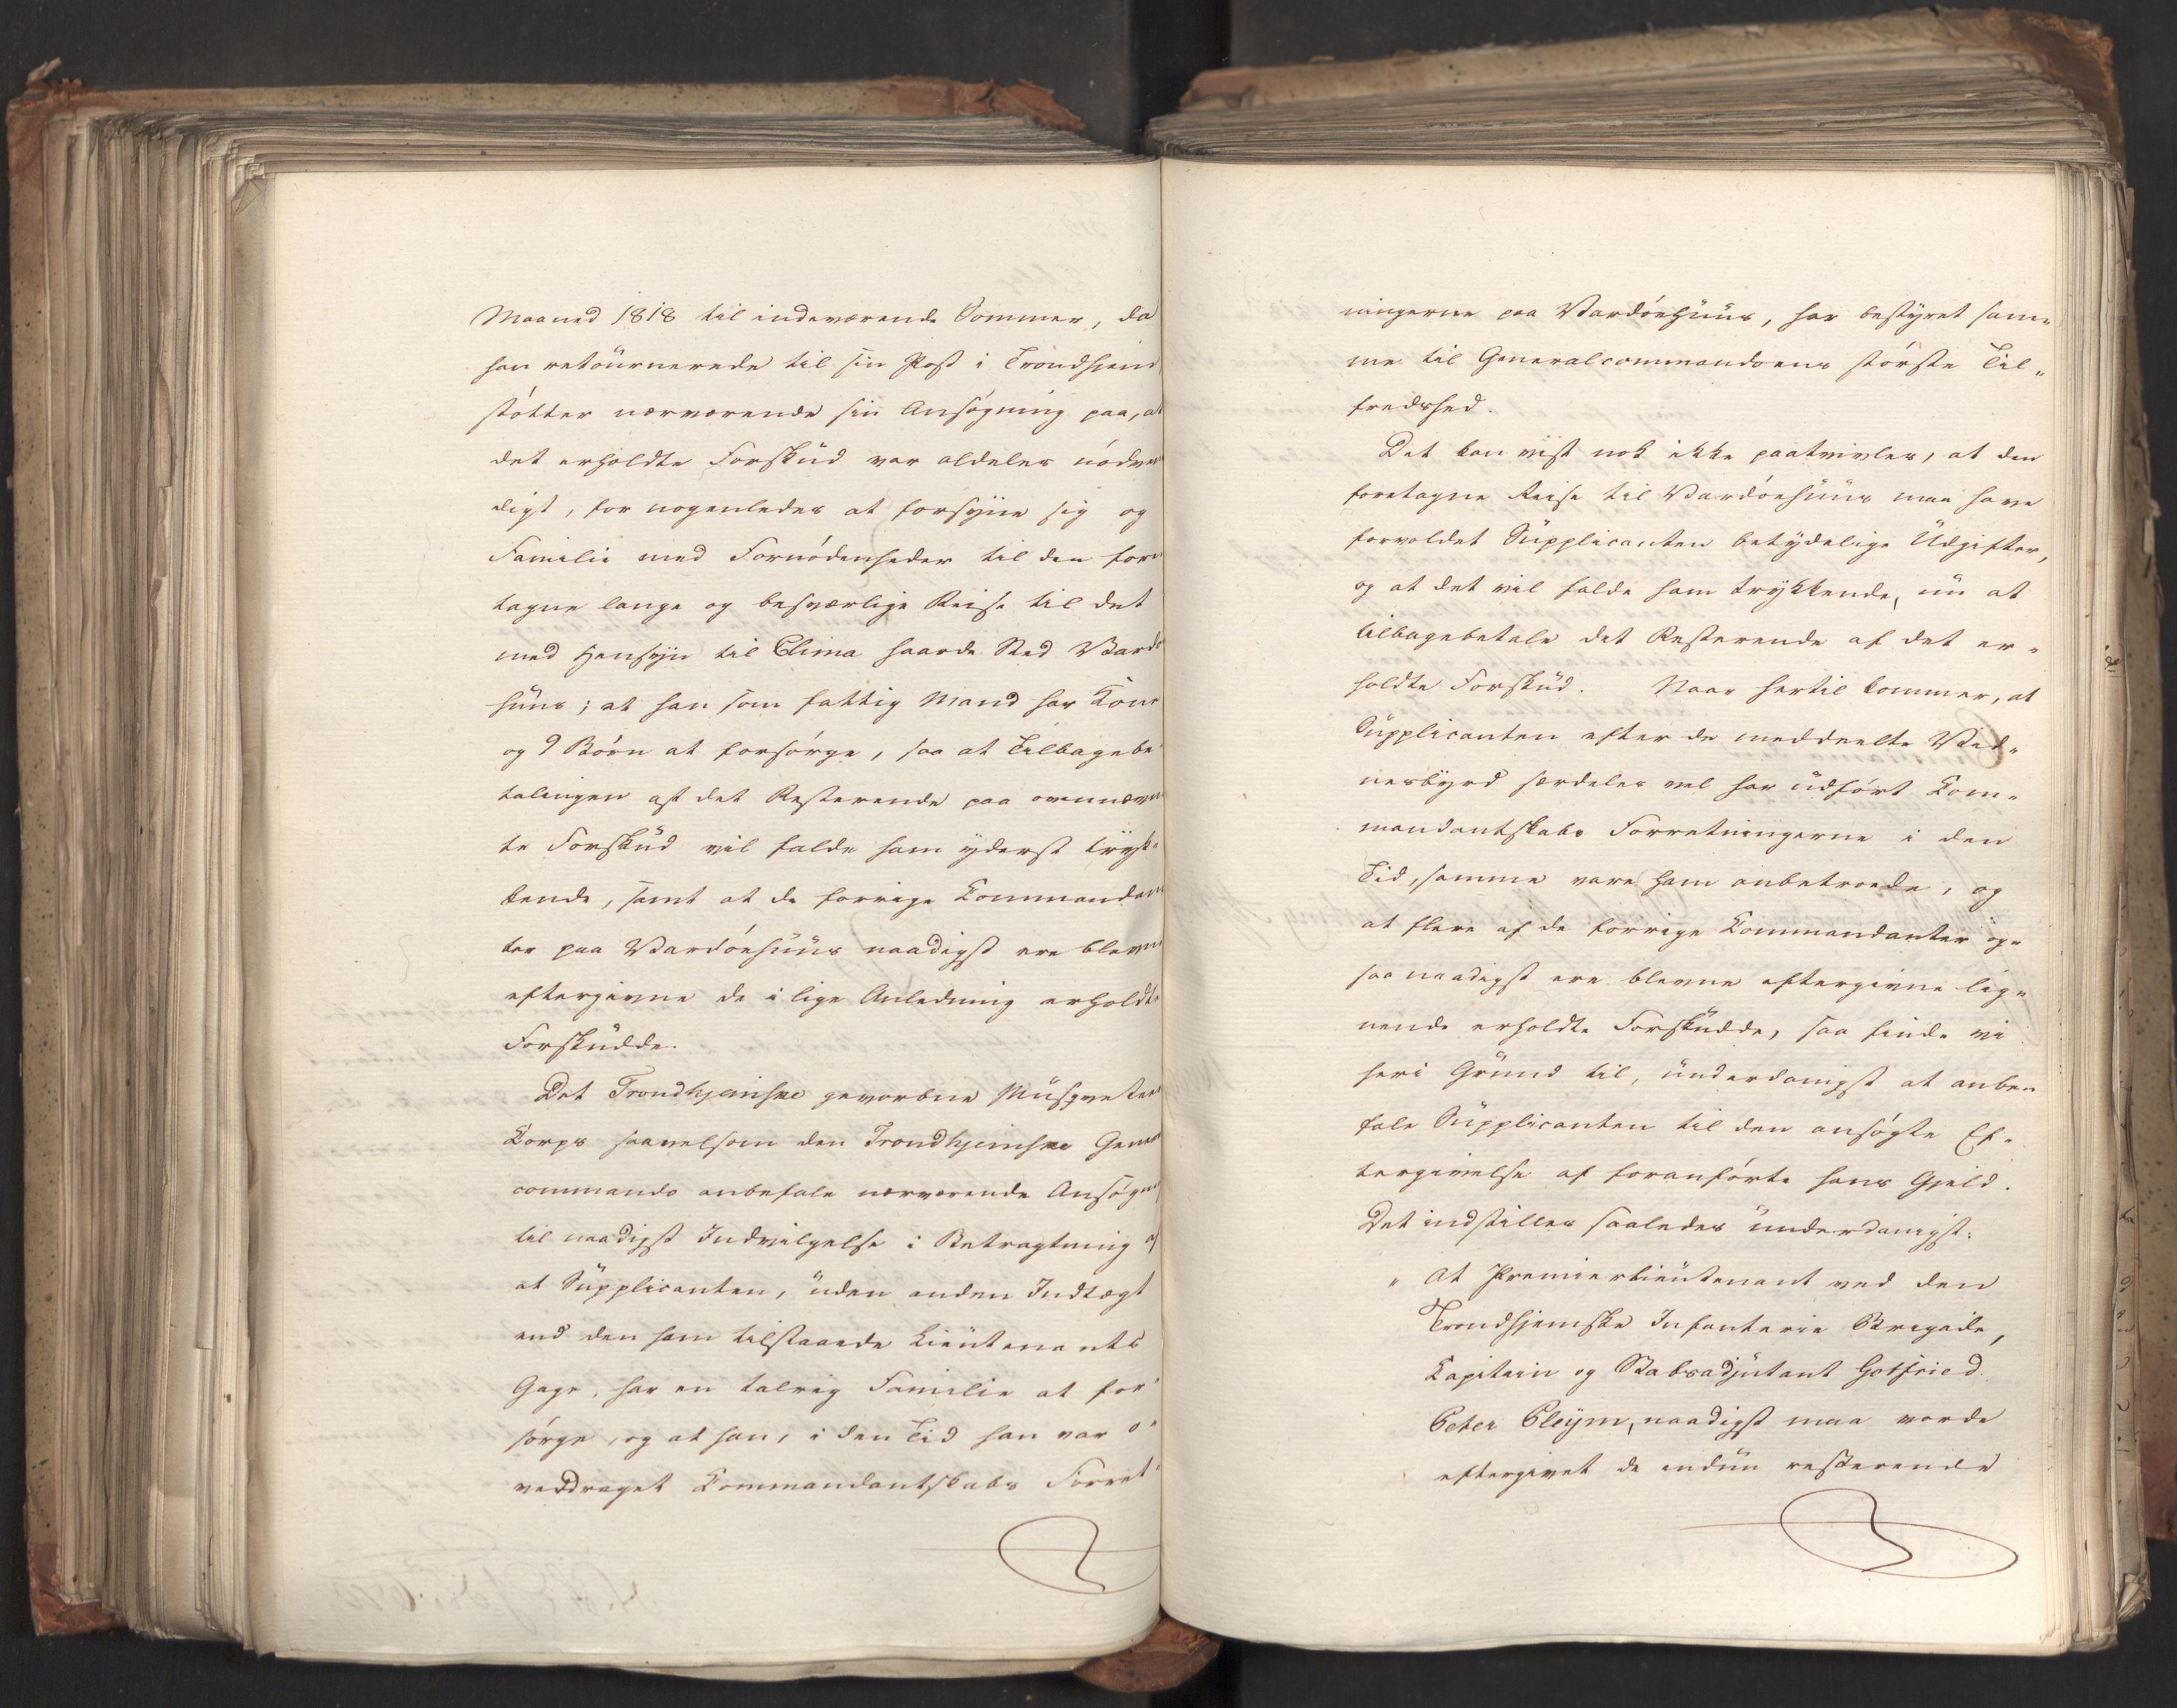 Maaned 1818 til indeværende Sommer, da
han retournerede til sin Post i Trondhjem
støtter nærværende sin Ansøgning paa, at
det erholdte Forskud var aldeles nødven
digt, for nogenledes at forsyne sig og
Familie med Fornødenheder til den fore
tagne lange og besværlige Reise til det
med Hensyn til Clima haarde Sted Vardø
huus; at han som fattig Mand har Kone
og 9 Börn at forsørge, saa at Tilbagebe
talingen af det Resterende paa ovennævn
te Forskud vil falde ham yderst tryk-
kende, samt at de forrige Commandan
ter paa Vardøehuus naadigst ere blevne
eftergivne de i lige Anledning erholdte
Forskudde.
Det Trondhjemske gevorbne Musqueteer
Corps saavelsom den Trondhjemske General
commando anbefale nærværende Ansøgning
til naadigst Indvilgelse i Betragtning af
at Supplicanten, uden anden Indtægt
end den ham tilstaaede Lieutenants
Gage, har en talrig Familie at for-
sørge, og at han, i den Tid han var o-
verdraget Commandantskabs Forret-
ningerne paa Vardøehuus, har bestyret sam-
me til Generalcommandoens største Til-
fredshed.
Det kan vist nok ikke paatvivles, at den
foretagne Reise til Vardøehuus maa have
forvoldet Supplicanten betydelige Udgifter,
og at det vil falde ham trykkende, nu at
tilbagebetale det Resterende af det er-
holdte Forskud. Naar hertil kommer, at
Supplicanten efter de meddeelte Vid-
nesbyrd særdeles vel har udført Com-
mandantskabs Forretningerne i den
Tid, samme vare ham anbetroede, og
at flere af de forrige Commandanter og-
saa naadigst ere blevne eftergivne lig-
nende erholdte Forskudde, saa finde vi
heri Grund til, underdanigst at anbe-
fale Supplicanten til den ansøgte Ef-
tergivelse af foranførte hans Gjeld.
Det indstilles saaledes underdanigst:
" At Premierlieutenant ved den
Trondhjemske Infanterie Brigade,
Capitain og Stabsadjutant Gotfried
Peter Cleÿm, naadigst maa vorde
eftergivet de endnu resterende